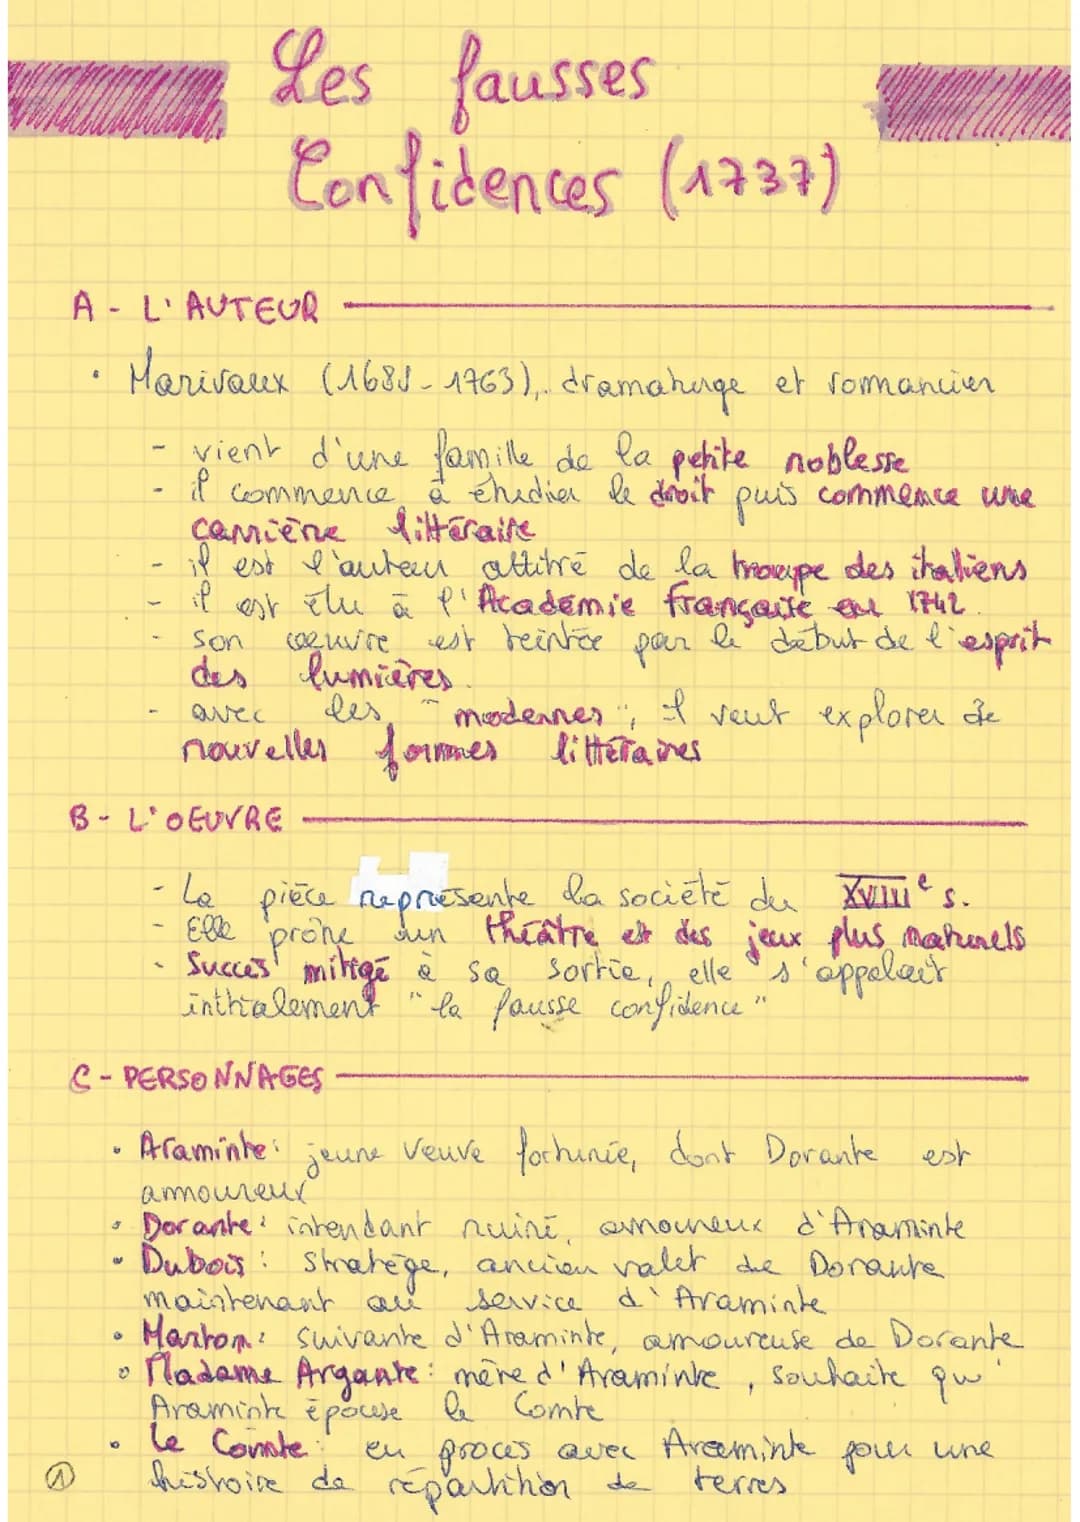 Les fausses
Confidences (1737)
A - L'AUTEUR
• Marivaux (1688 - 1763), dramaturge et romancier
- vient d'une famille de la petite noblesse
- il commence à étudier le droit puis commence une
carrière littéraire
- il est l'auteur attitré de la troupe des italiens
- il est élu à l'Académie française en 1742.
- son oeuvre est teintée par le début de l'esprit
des lumières.
- avec les "modernes", il veut explorer de
nouvelles formes littéraires
B - L'OEUVRE
- La pièce représente la société du XVIIIe s.
- Elle prône un théâtre et des jeux plus naturels
- Succès mitigé à sa sortie, elle s'appelait
inithialement "la fausse confidence"
C - PERSONNAGES
• Araminte: jeune veuve fortunée, dont Dorante est
amoureux
• Dorante: intendant ruiné, amoureux d'Araminte
• Dubois: stratège, ancien valet de Dorante
maintenant au service d'Araminte
• Marton: suivante d'Araminte, amoureuse de Dorante
• Madame Argante: mère d'Araminte, souhaite qu'
Araminte épouse le Comte
• Le Comte: en procès avec Araminte pour une
histoire de répartition de terres
1